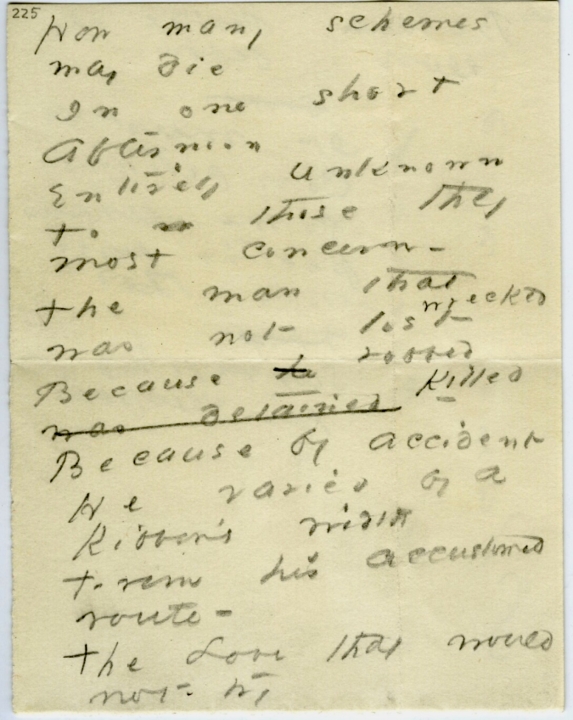 225
How many schemes
may die
In one short
Afternoon
Entirely unknown
to those they
most concern -
the man that
wrecked
was not lost
robbed
Because he
killed
was detained
Because by accident
He varied by a
Ribbon's width
from his accustomed
route -
the Love that would
not try